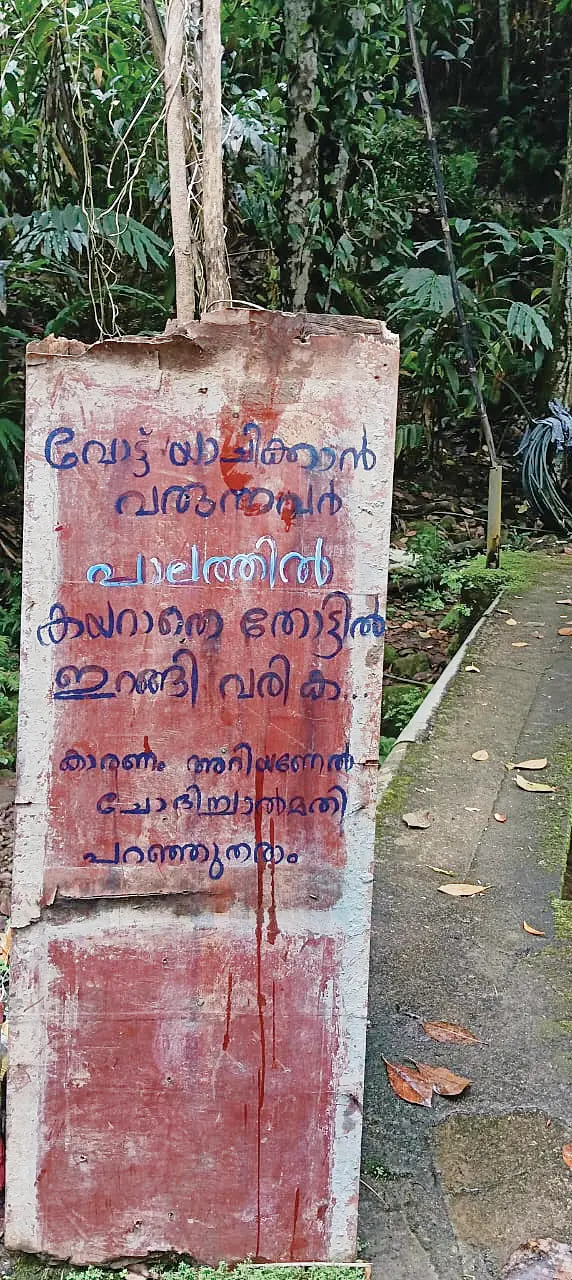 വോട്ട് യാചിക്കാൻ
വരുന്നവർ
പാലത്തിൽ
കയറാതെ തോട്ടിൽ
ഇറങ്ങി വരിക...
കാരണം അറിയണേൽ
ചോദിച്ചാൽമതി
പറഞ്ഞുതരാം